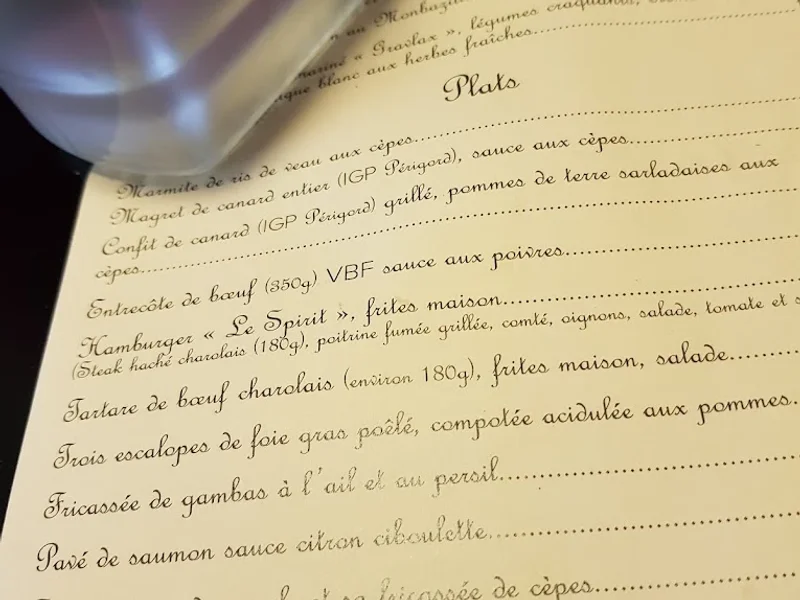 au Monbazil
mariné « Gravlax », légumes craquants,
que blanc aux herbes fraîches
Plats
Marmite de ris de veau aux cèpes
Magret de canard entier (IGP Périgord), sauce aux cèpes
Confit de canard (IGP Périgord) grillé, pommes de terre sarladaises aux
cèpes
Entrecôte de bœuf (350g) VBF sauce aux poivres
Hamburger « Le Spirit », frites maison
(Steak haché charolais (180g), poitrine fumée grillée, comté, oignons, salade, tomate et s
Tartare de bœuf charolais (environ 180g), frites maison, salade
Trois escalopes de foie gras poêlé, compotée acidulée aux pommes
Fricassée de gambas à l'ail et au persil
Pavé de saumon sauce citron ciboulette
et sa fricassée de cèpes